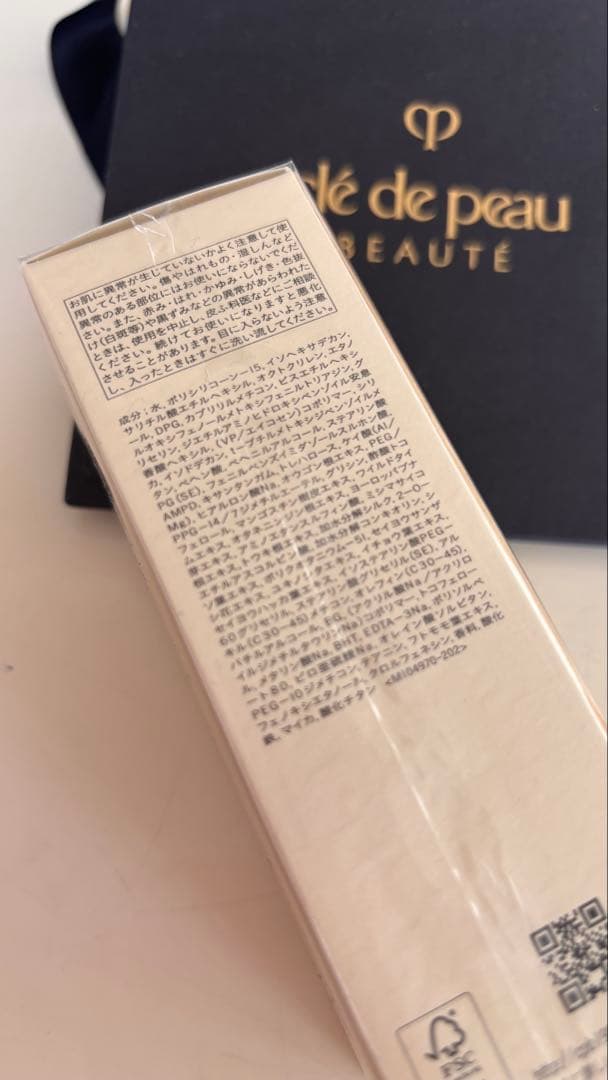 clé de peau
BEAUTÉ
お肌に異常が生じていないかよく注意して使
用してください。傷やはれもの・湿しんなど
異常のある部位にはお使いにならないでくだ
さい。また、赤み・はれ・かゆみ・しげき・色抜
け(白斑等)や黒ずみなどの異常があらわれた
ときは、使用を中止し、皮ふ科医などにご相談
ください。続けてお使いになりますと悪化
させることがあります。目に入らないよう注意
し、入ったときはすぐに洗い流してください。
成分:水,ポリシリコーン-15,イソヘキサデカン,
サリチル酸エチルヘキシル,オクトクリレン,エタノ
ール,DPG,カプリリルメチコン,ビスエチルヘキシ
ルオキシフェノールメトキシフェニルトリアジン,グ
リセリン,ジエチルアミノヒドロキシベンゾイル安息
香酸ヘキシル,(VP/エイコセン)コポリマー,シリ
カ,イソドデカン,t-ブチルメトキシジベンゾイルメ
タン,ベヘン酸,ベヘニルアルコール,ステアリン酸
PG(SE),フェニルベンズイミダゾールスルホン酸,
AMPD,キサンタンガム,トレハロース,ケイ酸(Al/
Mg),ヒアルロン酸Na,オウゴン根エキス,PEG/
PPG-14/7ジメチルエーテル,グリシン,酢酸トコ
フェロール,マンゴスチン樹皮エキス,ワイルドタイ
ムエキス,オタネニンジン根エキス,ヨーロッパブナ
芽エキス,アミノエチルスルフィン酸,ミシマサイコ
根エキス,トウキ根エキス,加水分解シルク,2-O-
エチルアスコルビン酸,加水分解コンキオリン,シ
ソ葉エキス,ポリクオタニウム-51,セイヨウサンザ
シ花エキス,ユキノシタエキス,イチョウ葉エキス,
60グリセリル,ステアリン酸グリセリル(SE),アル
キル(C30-45)メチコン,オレフィン(C30-45),
バチルアルコール,BG,(アクリル酸Na/アクリロ
イルジメチルタウリンNa)コポリマー,トコフェロー
ル,メタリン酸Na,BHT,EDTA-3Na,ポリソルベ
ート80,ピロ亜硫酸Na,オレイン酸ソルビタン,
PEG-10ジメチコン,テアニン,フトモモ葉エキス,
フェノキシエタノール,クロルフェネシン,香料,酸化
鉄,マイカ,酸化チタン <M104970-202>
FSC